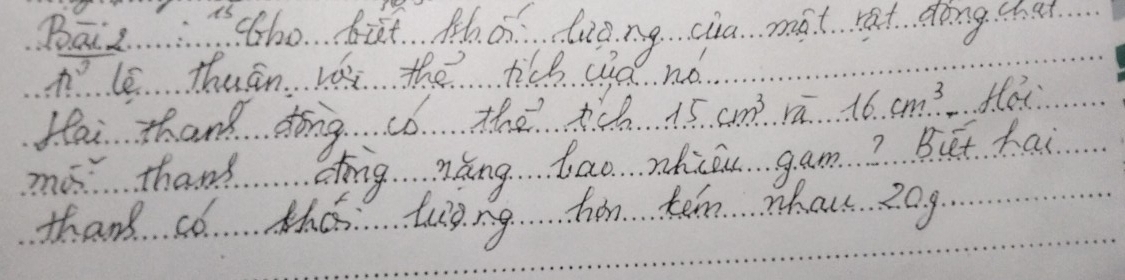 Bài 2 : Cho biết khối lượng của một vật đồng chất
tỉ lệ thuận với thể tích của nó
Hai thanh đồng có thể tích 15 cm³ và 16 cm³. Hỏi
mỗi thanh đồng nặng bao nhiêu gam ? Biết hai
thanh có khối lượng hơn kém nhau 20g